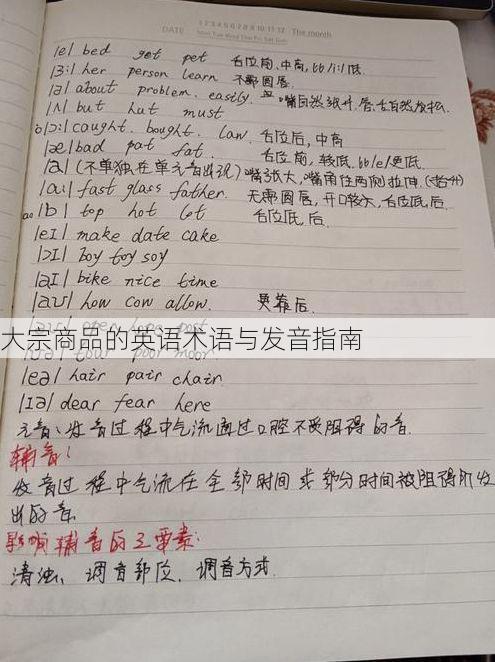 1 2 3 4 5 6 7 8 9 10 11 12 The month
DATE Mon Tue Wed Thu Fri Sat Sun
|e| bed get pet 舌位前、中高, 比/i:/低.
|ɜ:| her person learn 不需圆唇.
|ə| about problem. easily. 嘴自然张开. 唇、舌自然放松.
|ʌ| but hut must
|ɔ:| caught. bought. law. 舌位后, 中高
|æ| bad pat fat. 舌位前, 较低. 比/e/更低.
|a| (不单独在单元音出现) 嘴张大, 嘴角往两侧拉伸.
|ɑ:| fast glass father. 无需圆唇, 开口较大, 舌位低, 后.
|ɒ| top hot lot 舌位低, 后
|eɪ| make date cake
|ɔɪ| boy toy soy
|aɪ| bike nice time
|aʊ| how cow allow. 更靠后.
大宗商品的英语术语与发音指南
tour poor moor
|eə| hair pair chair.
|ɪə| dear fear here
元音: 发音过程中气流通过口腔不受阻碍的音.
辅音:
发音过程中气流在全部时间或部分时间被阻碍所发
出的音.
影响辅音的三要素:
清浊、调音部位、调音方式.